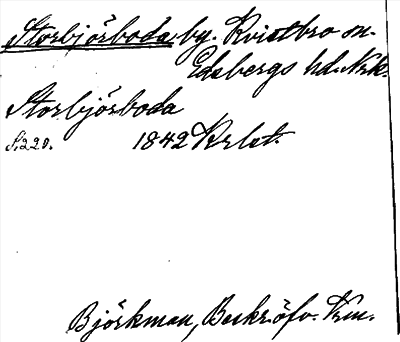 Storbjörboda, by. Kvistbro sn.
Edsbergs hd. Nrk.
Storbjörboda
S. 220. 1842 Krlst.
Björkman, Beskr. öfv. Km.